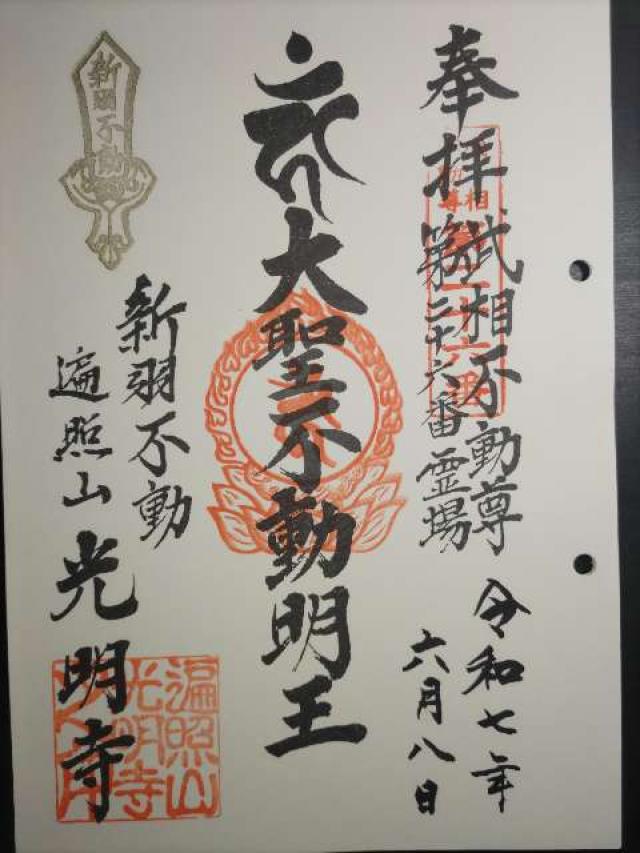 奉拝
武相不動尊
第二十六番霊場
令和七年
六月八日
大聖不動明王
新羽不動
新羽不動
遍照山
光明寺
遍照山
光明寺